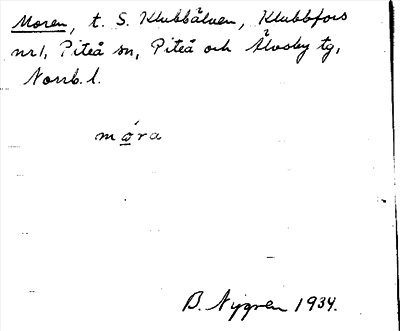 Moren, t. S. Klubbälven, Klubbfors
nr 1, Piteå sn, Piteå och Älvsby tg,
Norrb. l.
mo̲ra
B. Nygren 1934.